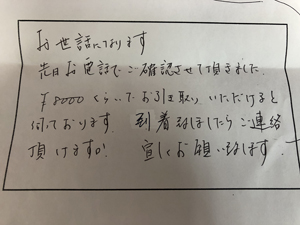 お世話になります
先日お電話でご確認させて頂きました.
¥8000くらいでお引き取りいただけると
伺っております. 到着致しましたらご連絡
頂けますか 宜しくお願い致します.